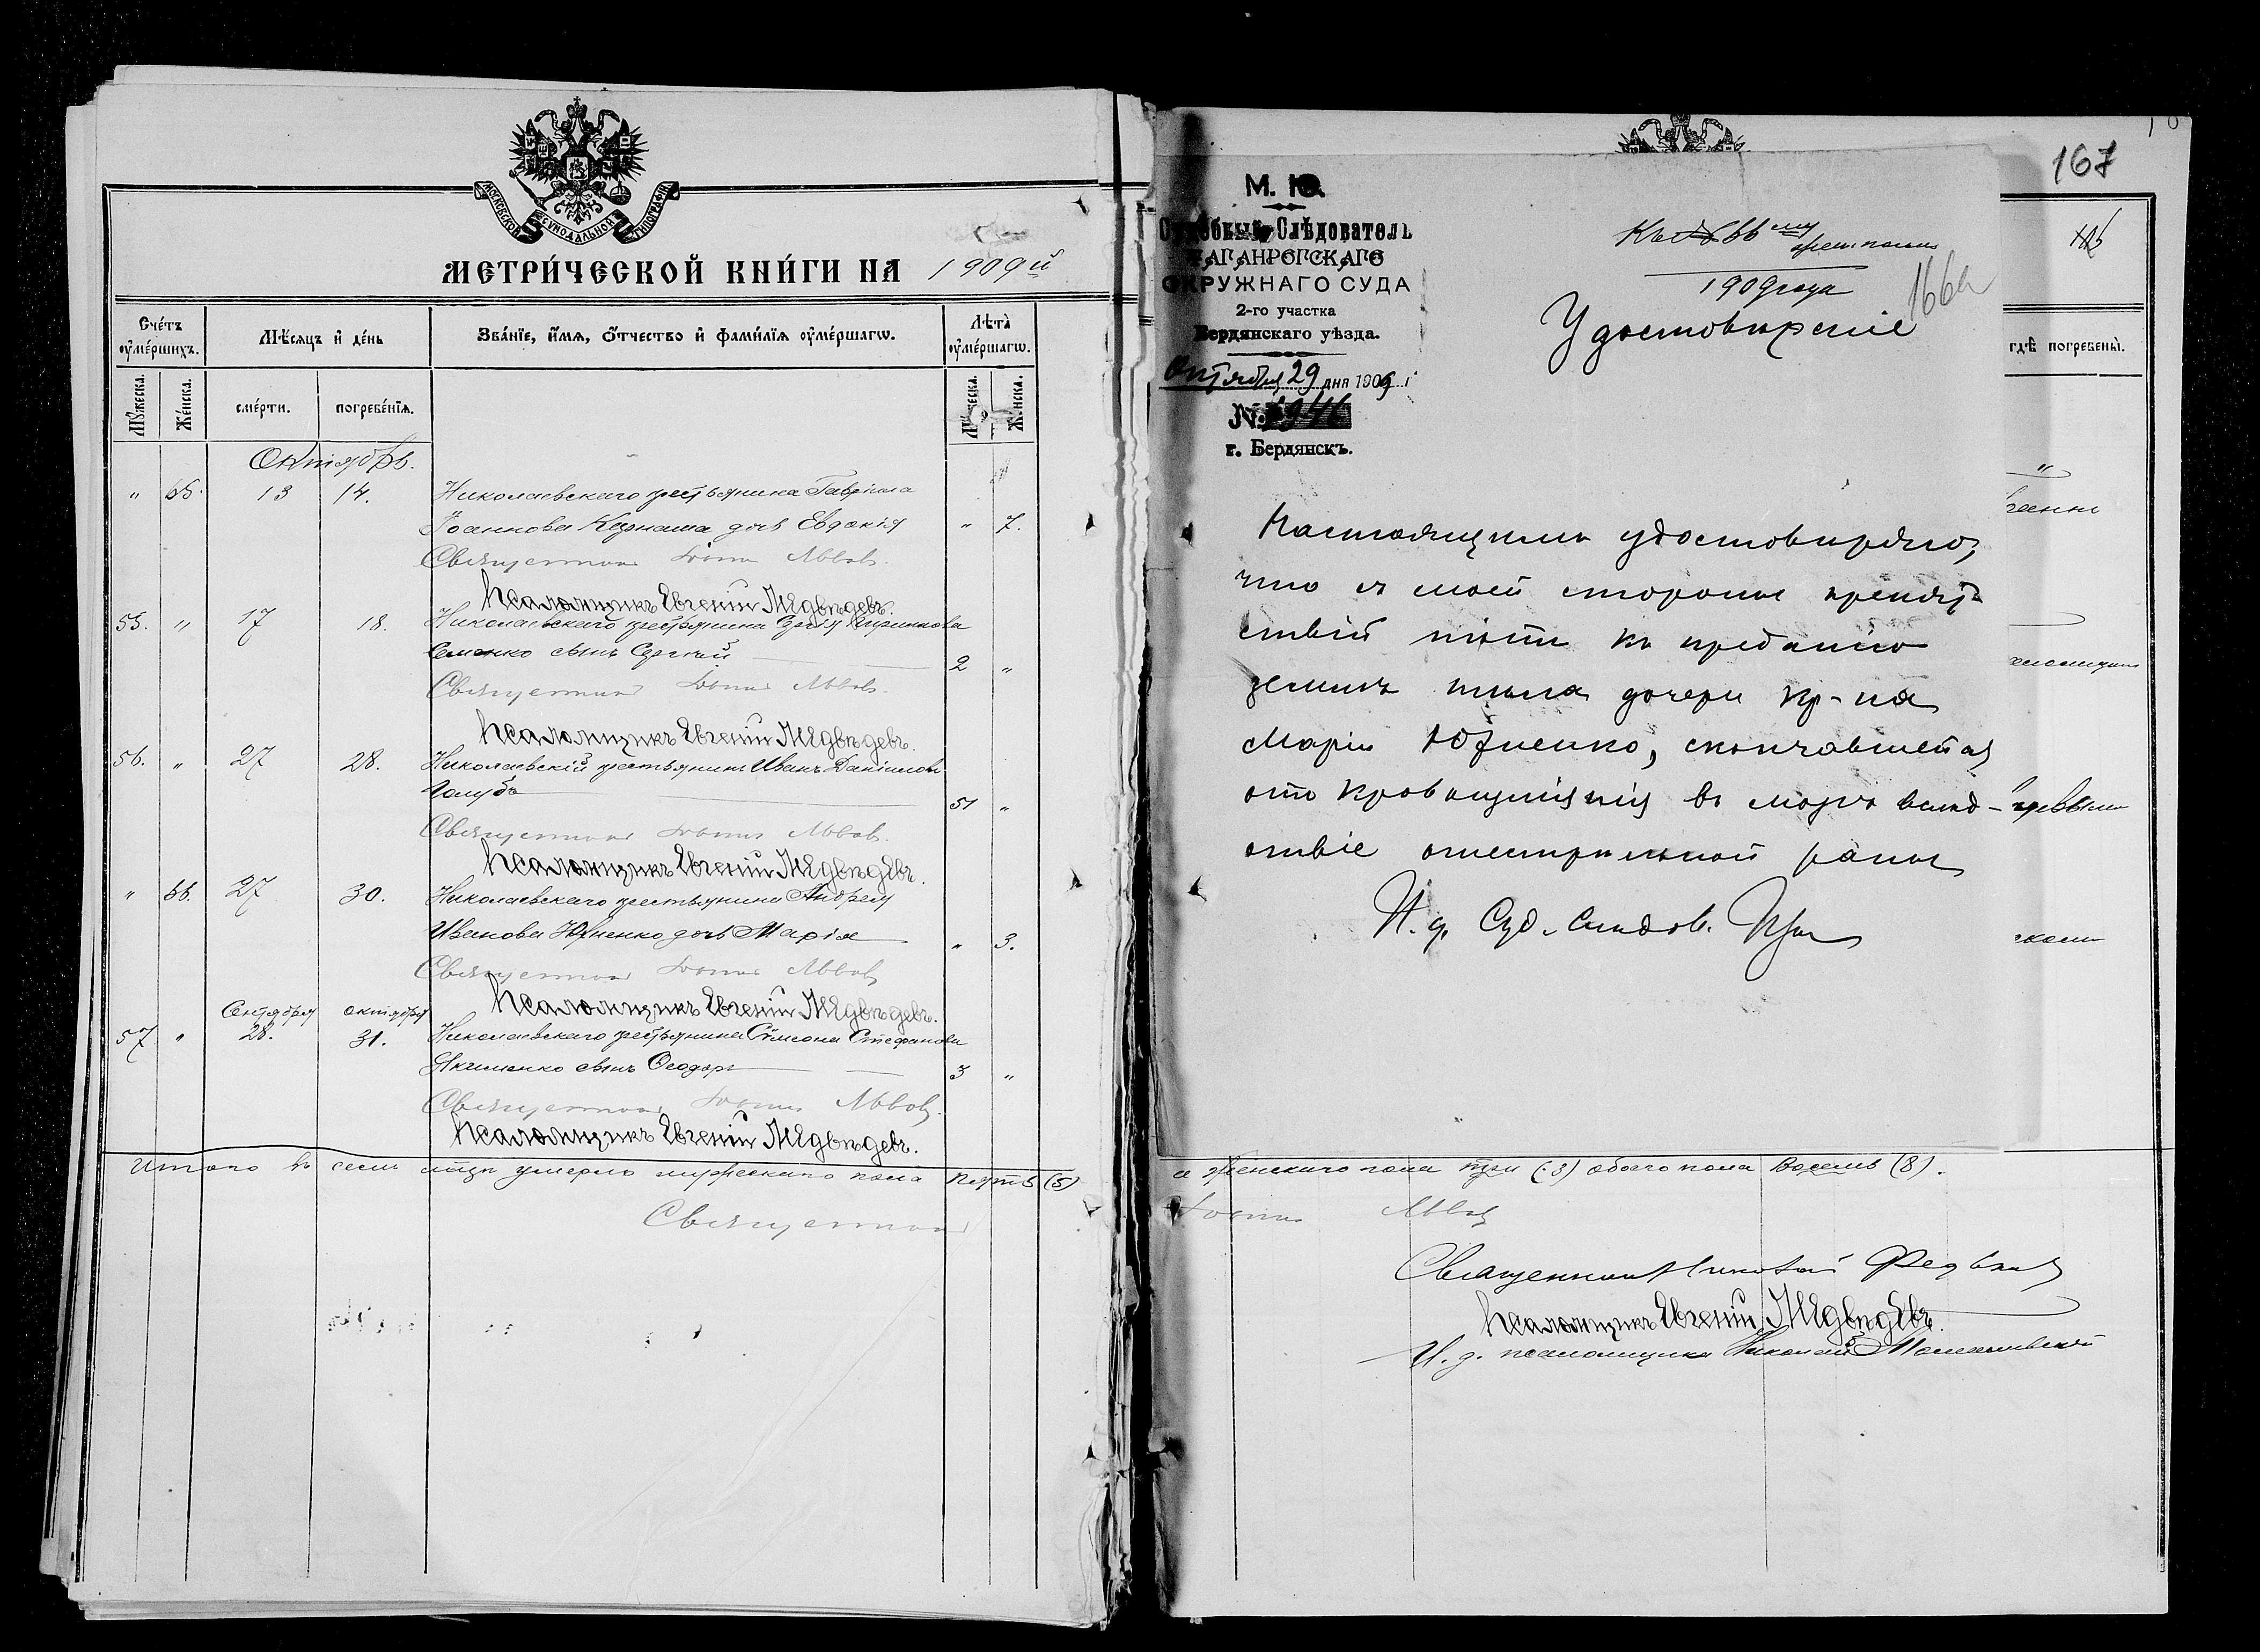 МОСКОВСКОЙ СѴНОДАЛЬНОЙ ТИПОГРАФІИ
МЕТРИ́ЧЕСКОЙ КНИ́ГИ НА 1909й
Сче́тъ оу҆ме́ршихъ.
Мѣ́сяцъ и҆ де́нь
Зва́нїе, и҆́мѧ, ѻ҆́тчество и҆ фами́лїѧ оу҆ме́ршагѡ.
Лѣ́та̀ оу҆ме́ршагѡ.
Мꙋ́жеска.
Же́нска.
сме́рти.
погребе́нїѧ.
Же́нска.
Октябрь.
" 65. 13 14. Николаевскаго крестьянина Гавріила
Іоаннова дочь Евдокія " 7.
Священникъ Іоаннъ Львовъ.
Псаломщикъ Евгеній Медвѣдевъ.
55. " 17 18. Николаевскаго крестьянина
Семенко сынъ Сергій 2 "
Священникъ Іоаннъ Львовъ.
Псаломщикъ Евгеній Медвѣдевъ.
56. " 27 28. Николаевскій крестьянинъ Иванъ Даніиловъ
Голубъ 51 "
Священникъ Іоаннъ Львовъ.
Псаломщикъ Евгеній Медвѣдевъ.
" 66. 27 30. Николаевскаго крестьянина Андрея
Иванова Юзненко дочь Марія " 3.
Священникъ Іоаннъ Львовъ
Псаломщикъ Евгеній Медвѣдевъ.
Сентября октября
57 " 28. 31. Николаевскаго крестьянина Сѵмеона Стефанова
Якименко сынъ Ѳеодоръ 3 "
Священникъ Іоаннъ Львовъ.
Псаломщикъ Евгеній Медвѣдевъ.
Итого въ семъ мѣсяцѣ умерло мужескаго пола пять (5)
Священникъ
167
М. Ю.
Судебный Слѣдователь
ТАГАНРОГСКАГО
ОКРУЖНАГО СУДА
2-го участка
Бердянскаго уѣзда.
Октября 29 дня 1909 г.
№ 1946
г. Бердянскъ.
Къ № 66
1909 года
Удостовѣреніе
гдѣ̀ погребены̀.
Настоящимъ удостовѣряю,
что съ моей стороны препят-
ствій нѣтъ къ преданію
землѣ тѣла дочери кр-на
Маріи Юзненко, скончавшейся
отъ кровоизліянія въ мозгъ вслѣд-
ствіе огнестрѣльной раны
И. д. Суд. Слѣдов.
а женскаго пола три (3) обоего пола восемь (8).
Іоаннъ Львовъ
Священникъ Николай
Псаломщикъ Евгеній Медвѣдевъ.
И. д. псаломщика Николай